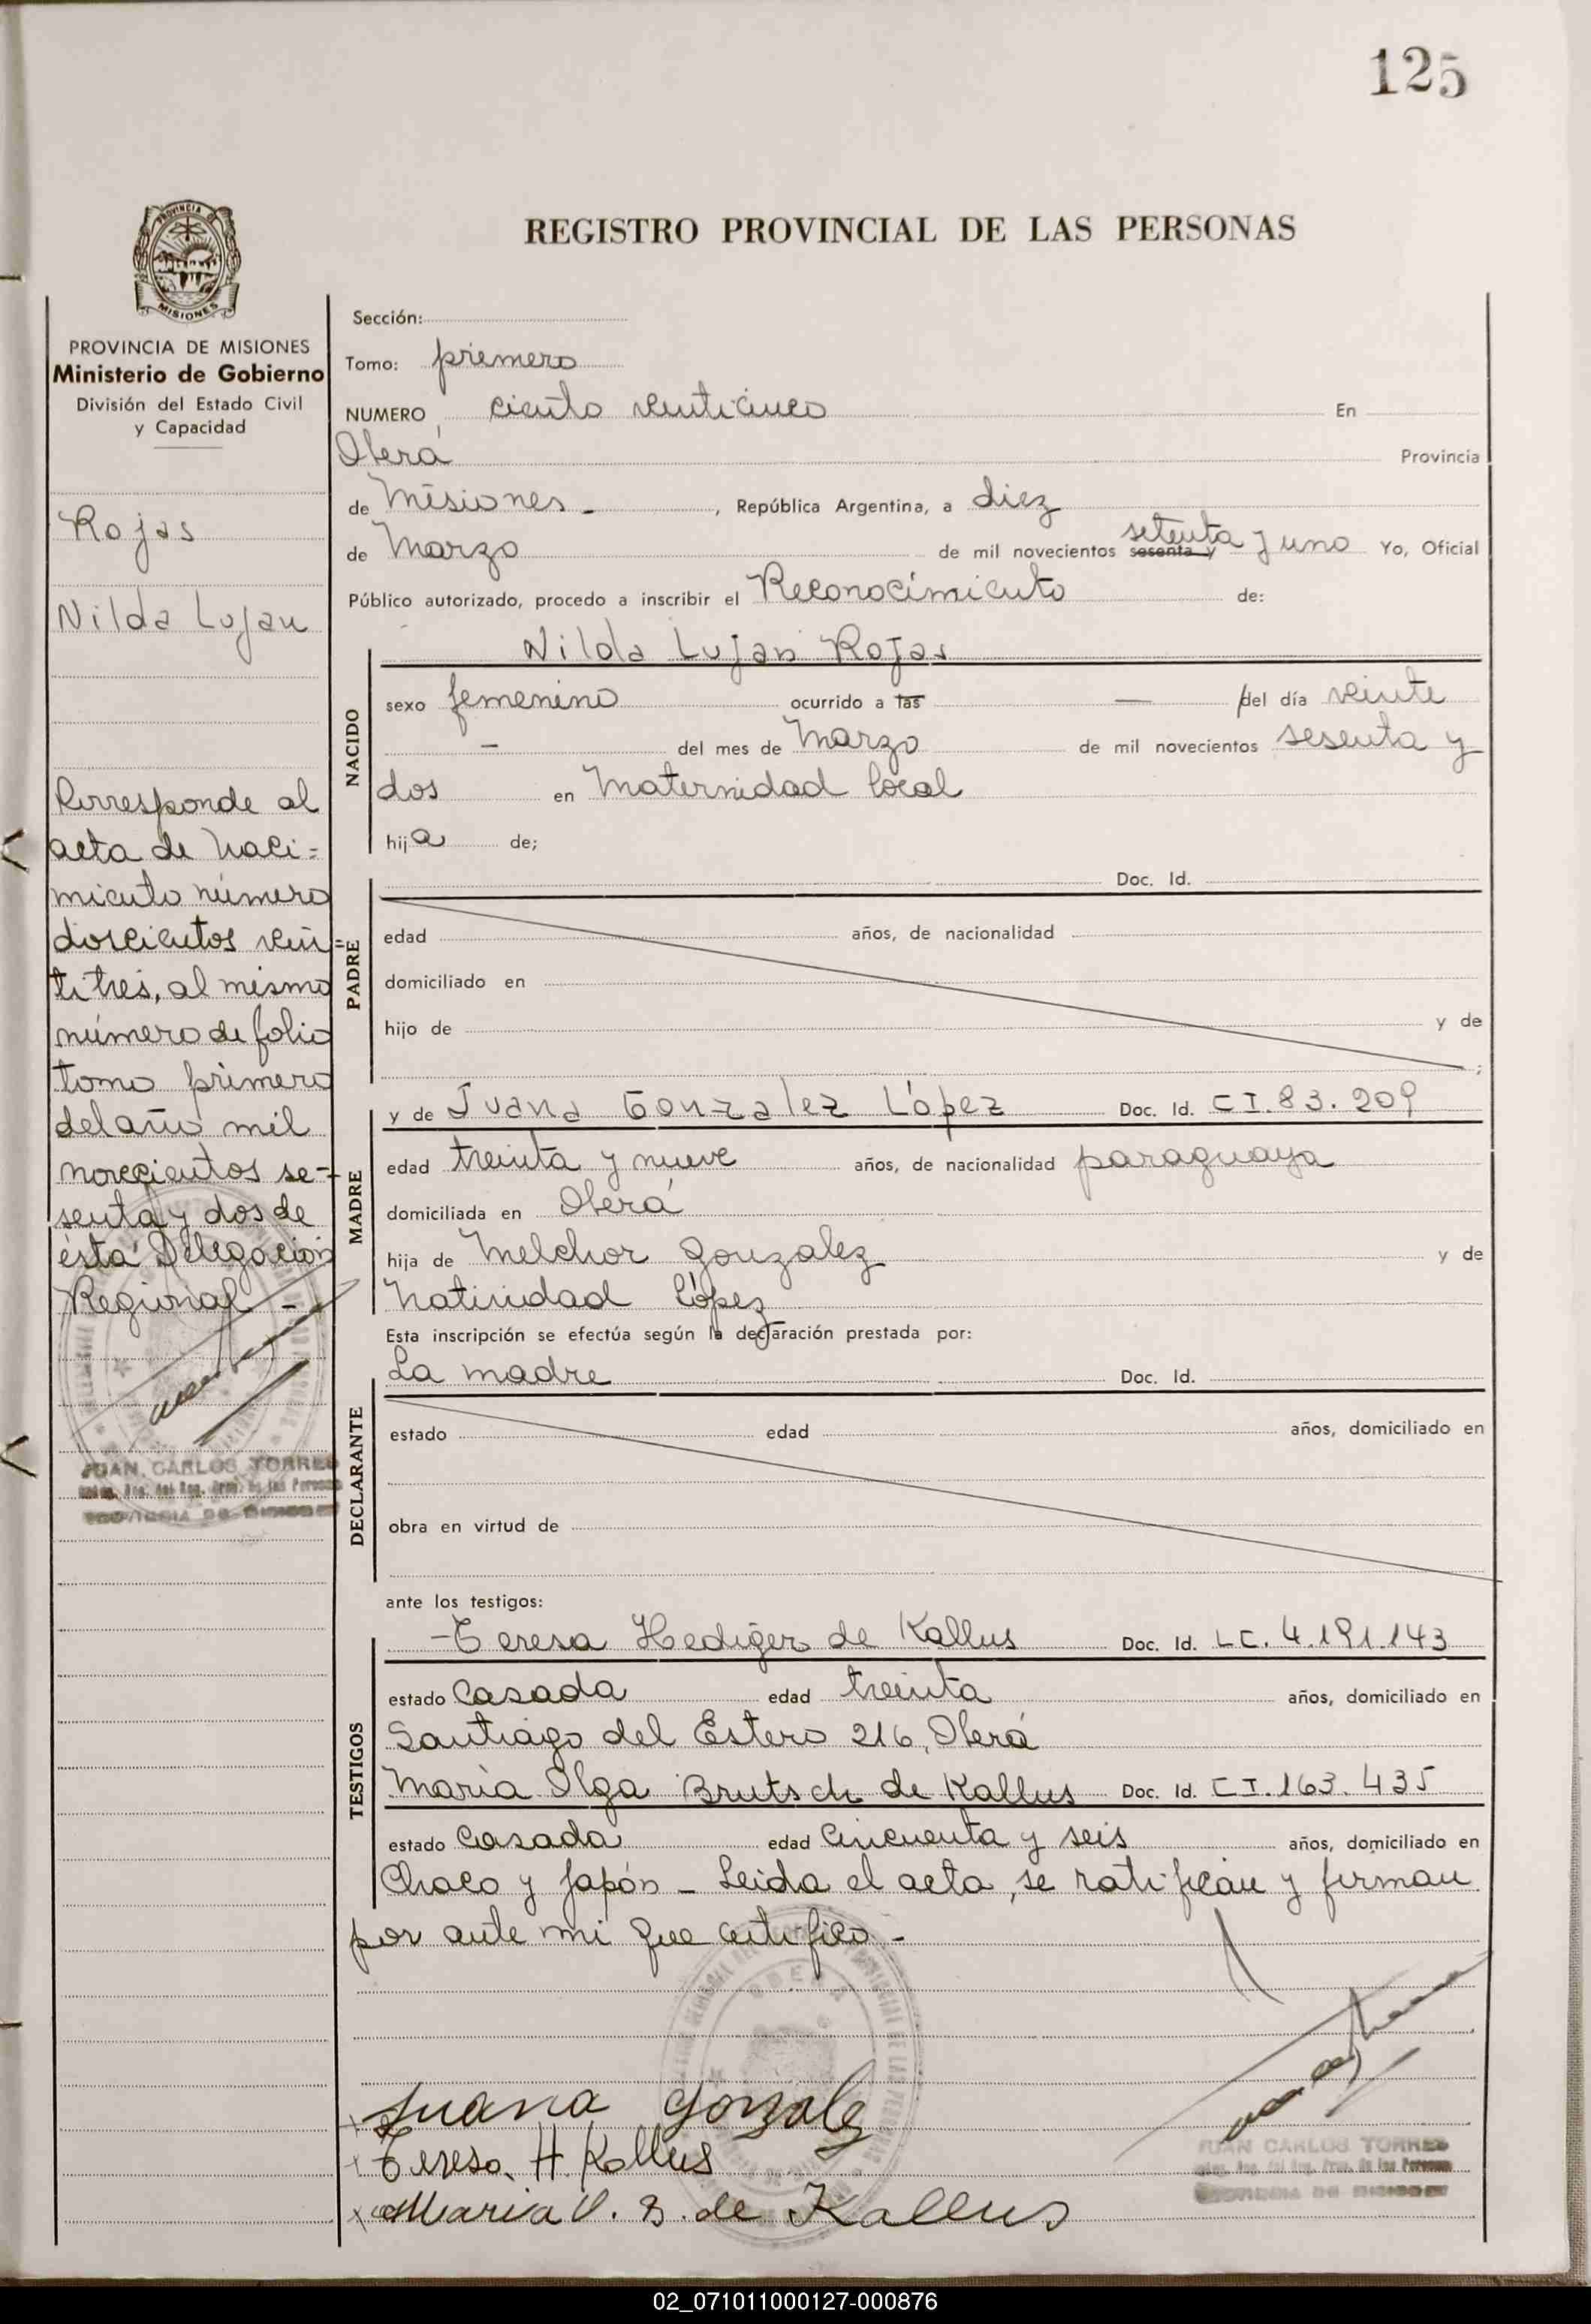 125
PROVINCIA DE
MISIONES
REGISTRO PROVINCIAL DE LAS PERSONAS
PROVINCIA DE MISIONES
Ministerio de Gobierno
División del Estado Civil
y Capacidad
Rojas
Nilda Lujan
Corresponde al
acta de naci=
miento número
doscientos vein=
titrés, al mismo
número de folio
tomo primero
del año mil
novecientos se-
senta y dos de
ésta Delegación
Regional -
JUAN CARLOS TORRES
Sección:
Tomo: priemero
NUMERO ciento venticinco En
Oberá Provincia
de Misiones - , República Argentina, a diez
de Marzo de mil novecientos sesenta y setenta y uno Yo, Oficial
Público autorizado, procedo a inscribir el Reconocimiento de:
Nilda Lujan Rojas
NACIDO
sexo femenino ocurrido a las — del día veinte
— del mes de Marzo de mil novecientos sesenta y
dos en Maternidad local
hija de;
PADRE
Doc. Id.
edad años, de nacionalidad
domiciliado en
hijo de y de
;
MADRE
y de Juana Gonzalez López Doc. Id. CI. 83. 209
edad treinta y nueve años, de nacionalidad paraguaya
domiciliada en Oberá
hija de Melchor Gonzalez y de
Natividad López
Esta inscripción se efectúa según la declaración prestada por:
DECLARANTE
La madre Doc. Id.
estado edad años, domiciliado en
obra en virtud de
ante los testigos:
TESTIGOS
-Teresa Hediger de Kallus Doc. Id. LC. 4.191.143
estado Casada edad treinta años, domiciliado en
Santiago del Estero 216, Oberá
Maria Olga Brutsch de Kallus Doc. Id. CI. 163. 435
estado Casada edad Cincuenta y seis años, domiciliado en
Chaco y Japón - Leida el acta, se ratifican y firman
por ante mi que certifico -
OBERA
Juana Gonzalez
Teresa H. Kallus
Maria O. B. de Kallus
JUAN CARLOS TORRES
02_071011000127-000876